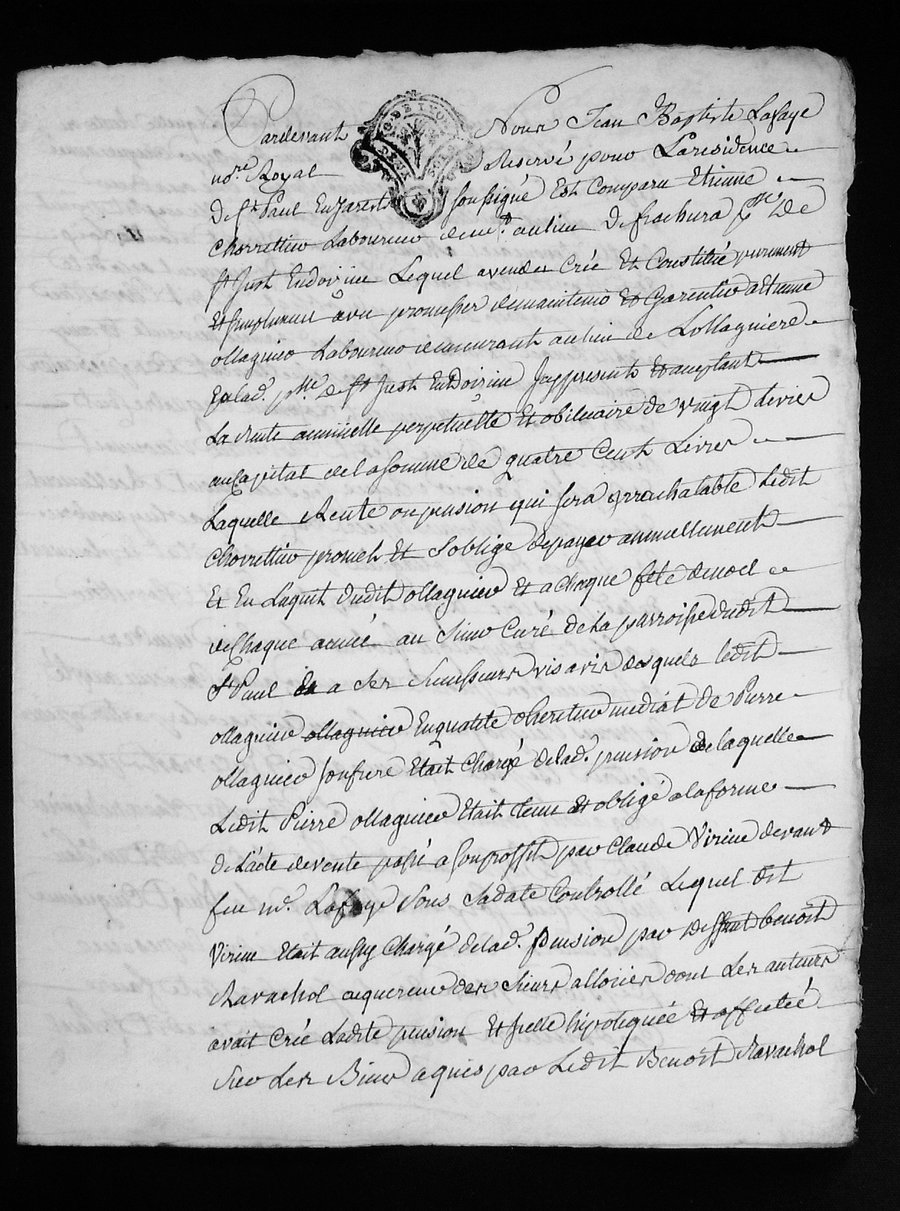 Pardevant Nous Jean Baptiste Lafaye
no.re Royal Reservé pour La residence
de St Paul En Jarest soussigné Est Comparu Etienne
Chorrettier Laboureur dem.t au lieu de frachura p.sse De
St Just En doizieu Lequel a vendu Crée Et Constitué purement
Et simplement avec promesse de maintenir Et Garentir a Etienne
ollagnier Laboureur demeurant au lieu de Lollagniere
En lad. p.sse de St Just En Doizieu Icy present Et acceptant
La rente annuelle perpetuelle Et obituaire de vingt Livres
au Capital de la somme de quatre Cent Livres
Laquelle Rente ou pension qui sera irrachatable Ledit
Chorrettier promet Et s'oblige de payer annuellement
Et En L'aquit dudit ollagnier Et a Chaque fête de noel
de Chaque année au Sieur Curé de la parroisse dudit
St Paul Et a Ses Successeurs vis a vis desquels ledit
ollagnier ollagnier En qualité d'heritier mediat de Pierre
ollagnier son frere Etait Chargé de lad. pension de laquelle
Ledit Pierre ollagnier Etait tenu Et obligé a la forme
de L'acte de vente passé a son proffit par Claude Virieu devant
feu me. Lafaye Sous Sa date Controllé Lequel dit
Virieu Etait aussy Chargé de lad. pension par Deffunt benoît
Ravachol acquereur des Sieurs allovier dont Les auteurs
avait Crée Ladite pension Et Icelle hipotiquée Et affectée
Sur Les Biens aquis par Ledit Benoît Ravachol